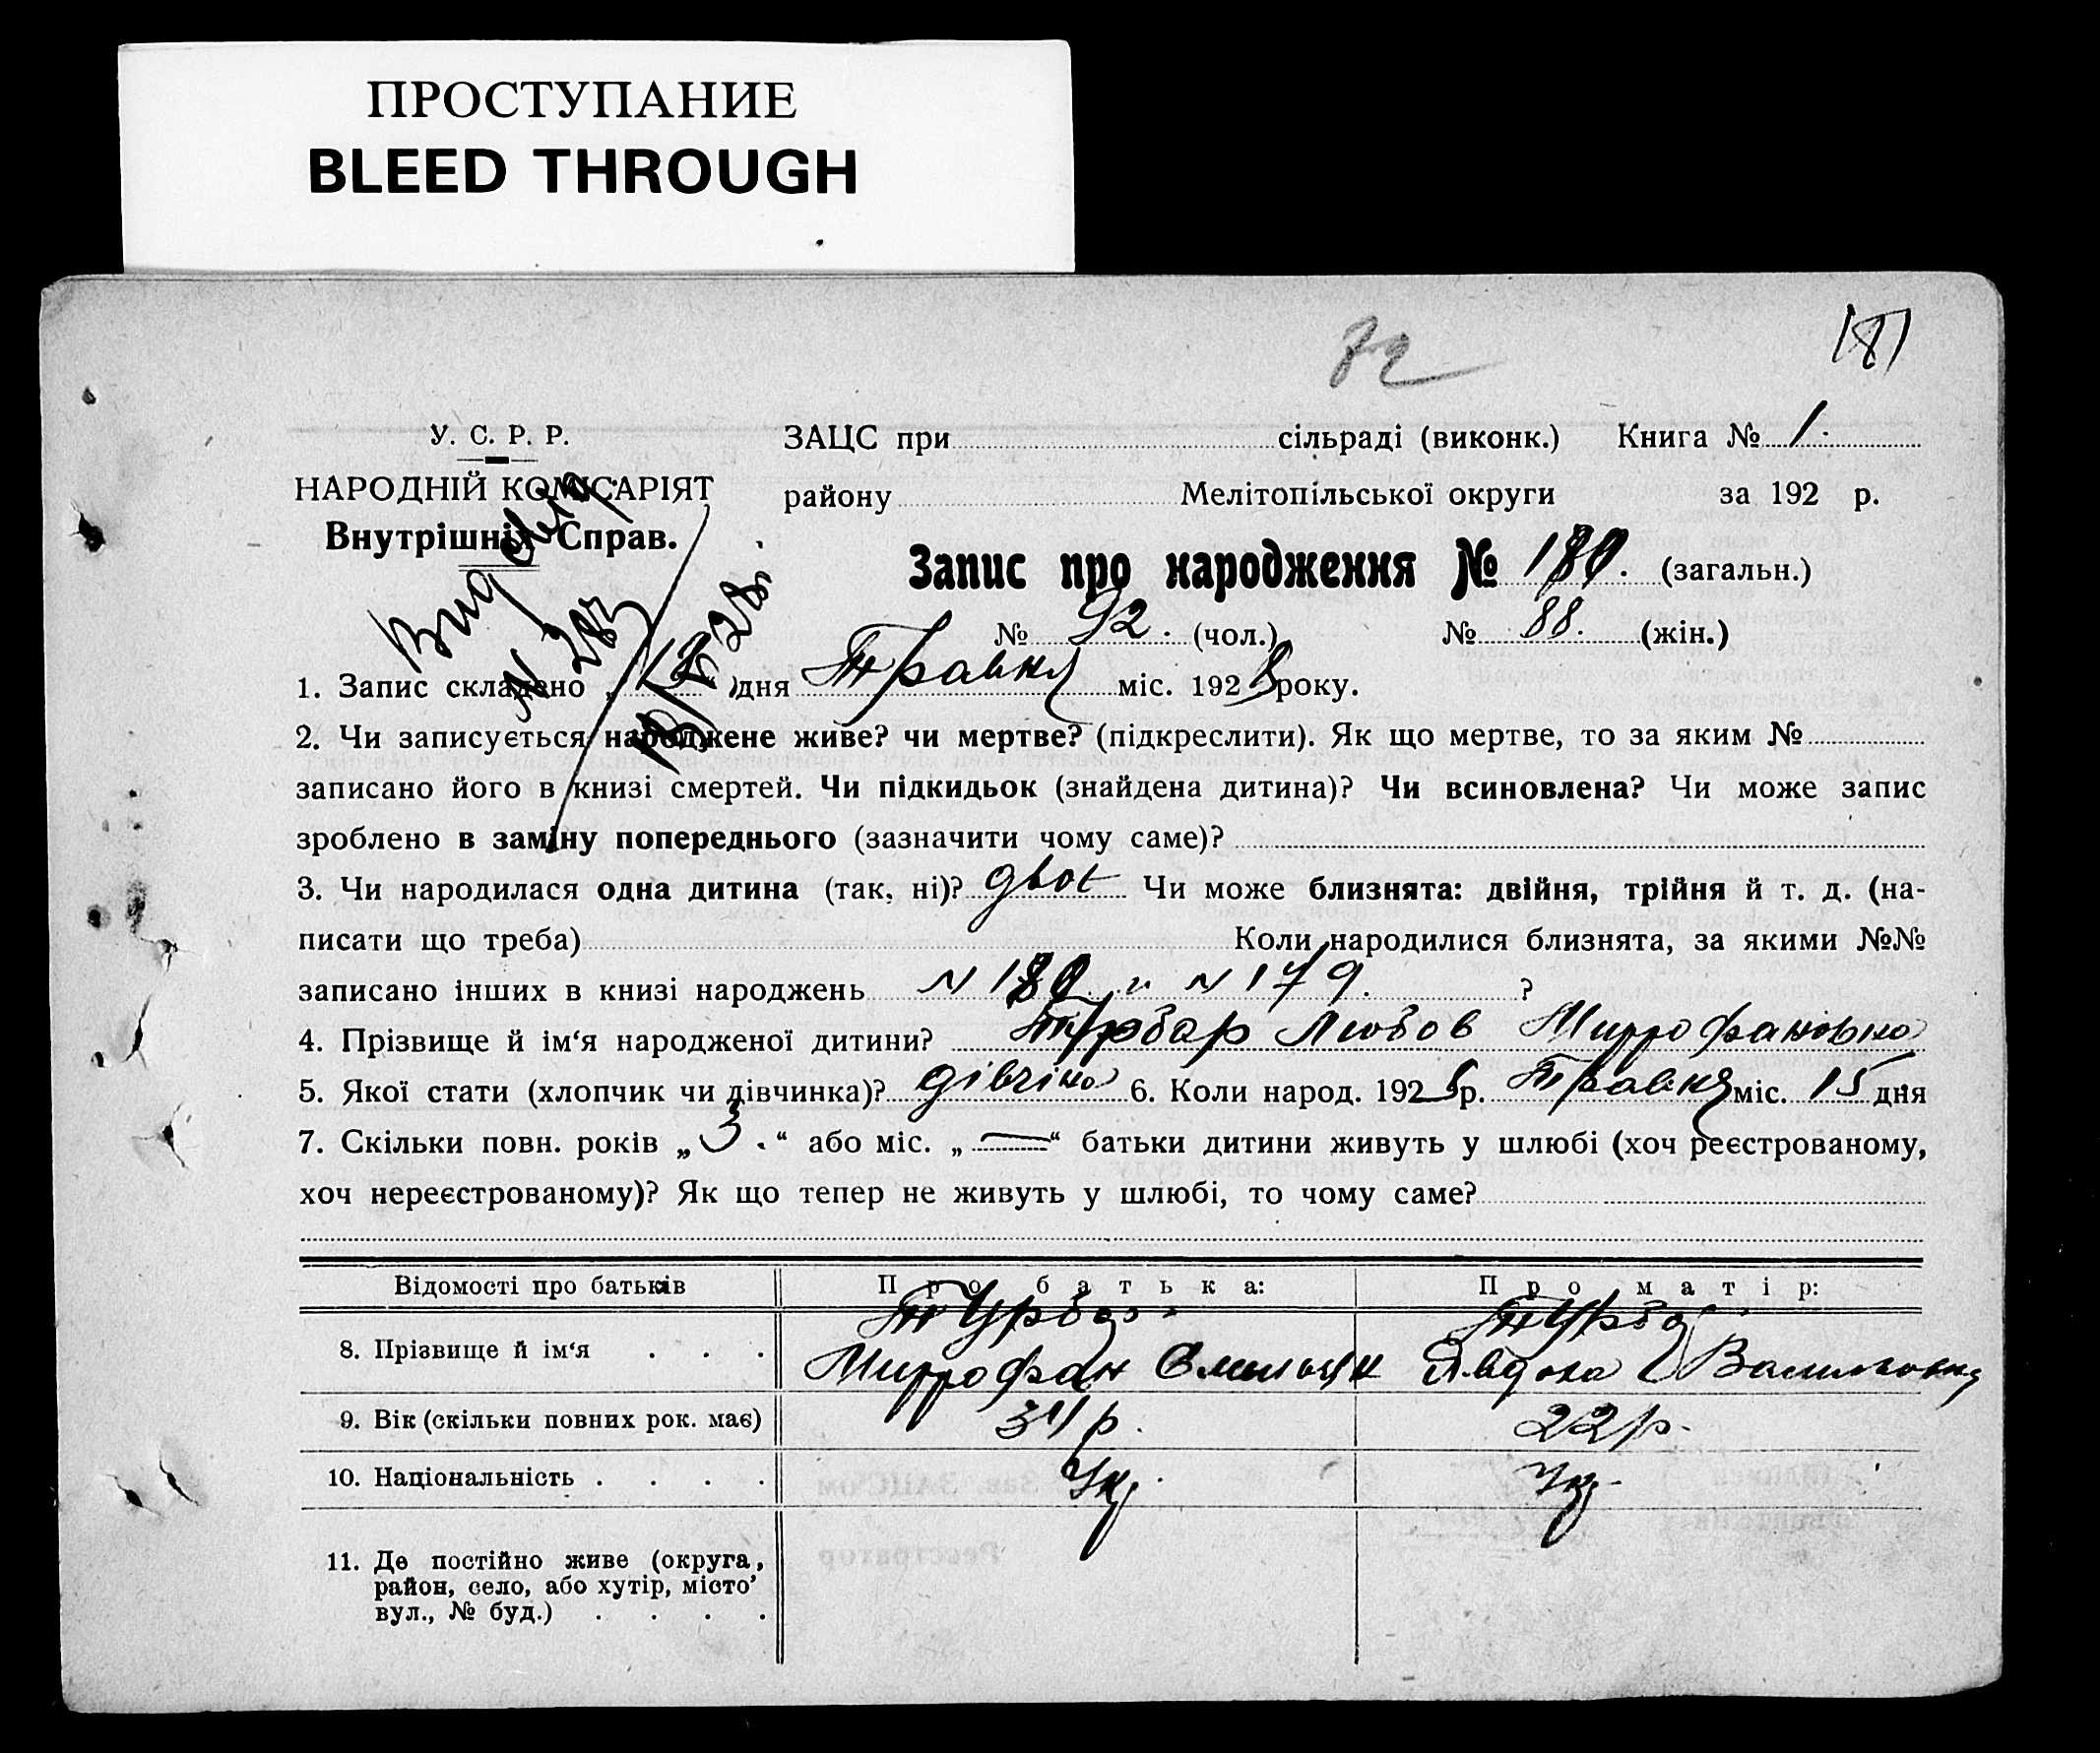 ПРОСТУПАНИЕ
BLEED THROUGH
72
181
У. С. Р. Р.
НАРОДНІЙ КОМІСАРІЯТ
Внутрішніх Справ.
ЗАЦС при сільраді (виконк.) Книга № 1.
району Мелітопільської округи за 192 р.
Запис про народження № 180. (загальн.)
№ 92. (чол.) № 88. (жін.)
1. Запис складено „ “ дня Травня міс. 1928 року.
2. Чи записується народжене живе? чи мертве? (підкреслити). Як що мертве, то за яким №
записано його в книзі смертей. Чи підкидьок (знайдена дитина)? Чи всиновлена? Чи може запис
зроблено в заміну попереднього (зазначити чому саме)?
3. Чи народилася одна дитина (так, ні)? Чи може близнята: двійня, трійня й т. д. (на-
писати що треба) Коли народилися близнята, за якими №№
записано інших в книзі народжень N 180. и N 179. ?
4. Прізвище й ім‘я народженої дитини? Турбар Любов
5. Якої стати (хлопчик чи дівчинка)? 6. Коли народ. 1928 р. Травня міс. 15 дня
7. Скільки повн. років „ 3. “ або міс. „ — “ батьки дитини живуть у шлюбі (хоч реєстрованому,
хоч нереєстрованому)? Як що тепер не живуть у шлюбі, то чому саме?
Відомості про батьків Про батька: Про матір:
8. Прізвище й ім‘я . . .
9. Вік (скільки повних рок. має) 34 р. 22 р.
10. Національність . . . . Укр. Укр.
11. Де постійно живе (округа,
район, село, або хутір, місто’
вул., № буд.) . . . .